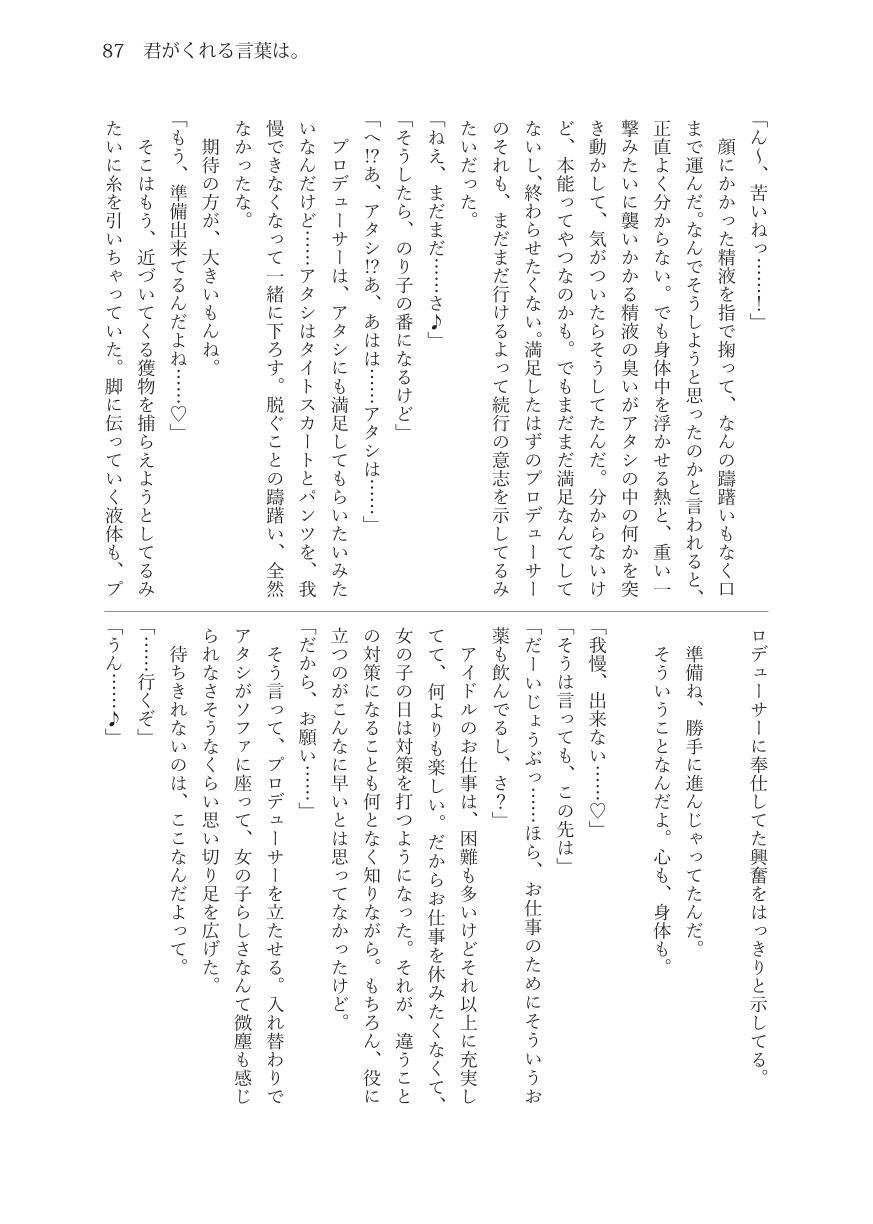 87　君がくれる言葉は。
「ん〜、苦いねっ……！」
　顔にかかった精液を指で掬って、なんの躊躇いもなく口
まで運んだ。なんでそうしようと思ったのかと言われると、
正直よく分からない。でも身体中を浮かせる熱と、重い一
撃みたいに襲いかかる精液の臭いがアタシの中の何かを突
き動かして、気がついたらそうしてたんだ。分からないけ
ど、本能ってやつなのかも。でもまだまだ満足なんてして
ないし、終わらせたくない。満足したはずのプロデューサー
のそれも、まだまだ行けるよって続行の意志を示してるみ
たいだった。
「ねえ、まだまだ……さ♪」
「そうしたら、のり子の番になるけど」
「へ!?あ、アタシ!?あ、あはは……アタシは……」
　プロデューサーは、アタシにも満足してもらいたいみた
いなんだけど……アタシはタイトスカートとパンツを、我
慢できなくなって一緒に下ろす。脱ぐことの躊躇い、全然
なかったな。
　期待の方が、大きいもんね。
「もう、準備出来てるんだよね……♡」
　そこはもう、近づいてくる獲物を捕らえようとしてるみ
たいに糸を引いちゃっていた。脚に伝っていく液体も、プ
ロデューサーに奉仕してた興奮をはっきりと示してる。
　準備ね、勝手に進んじゃってたんだ。
　そういうことなんだよ。心も、身体も。
「我慢、出来ない……♡」
「そうは言っても、この先は」
「だーいじょうぶっ……ほら、お仕事のためにそういうお
薬も飲んでるし、さ？」
　アイドルのお仕事は、困難も多いけどそれ以上に充実し
てて、何よりも楽しい。だからお仕事を休みたくなくて、
女の子の日は対策を打つようになった。それが、違うこと
の対策になることも何となく知りながら。もちろん、役に
立つのがこんなに早いとは思ってなかったけど。
「だから、お願い……」
　そう言って、プロデューサーを立たせる。入れ替わりで
アタシがソファに座って、女の子らしさなんて微塵も感じ
られなさそうなくらい思い切り足を広げた。
　待ちきれないのは、ここなんだよって。
「……行くぞ」
「うん……♪」